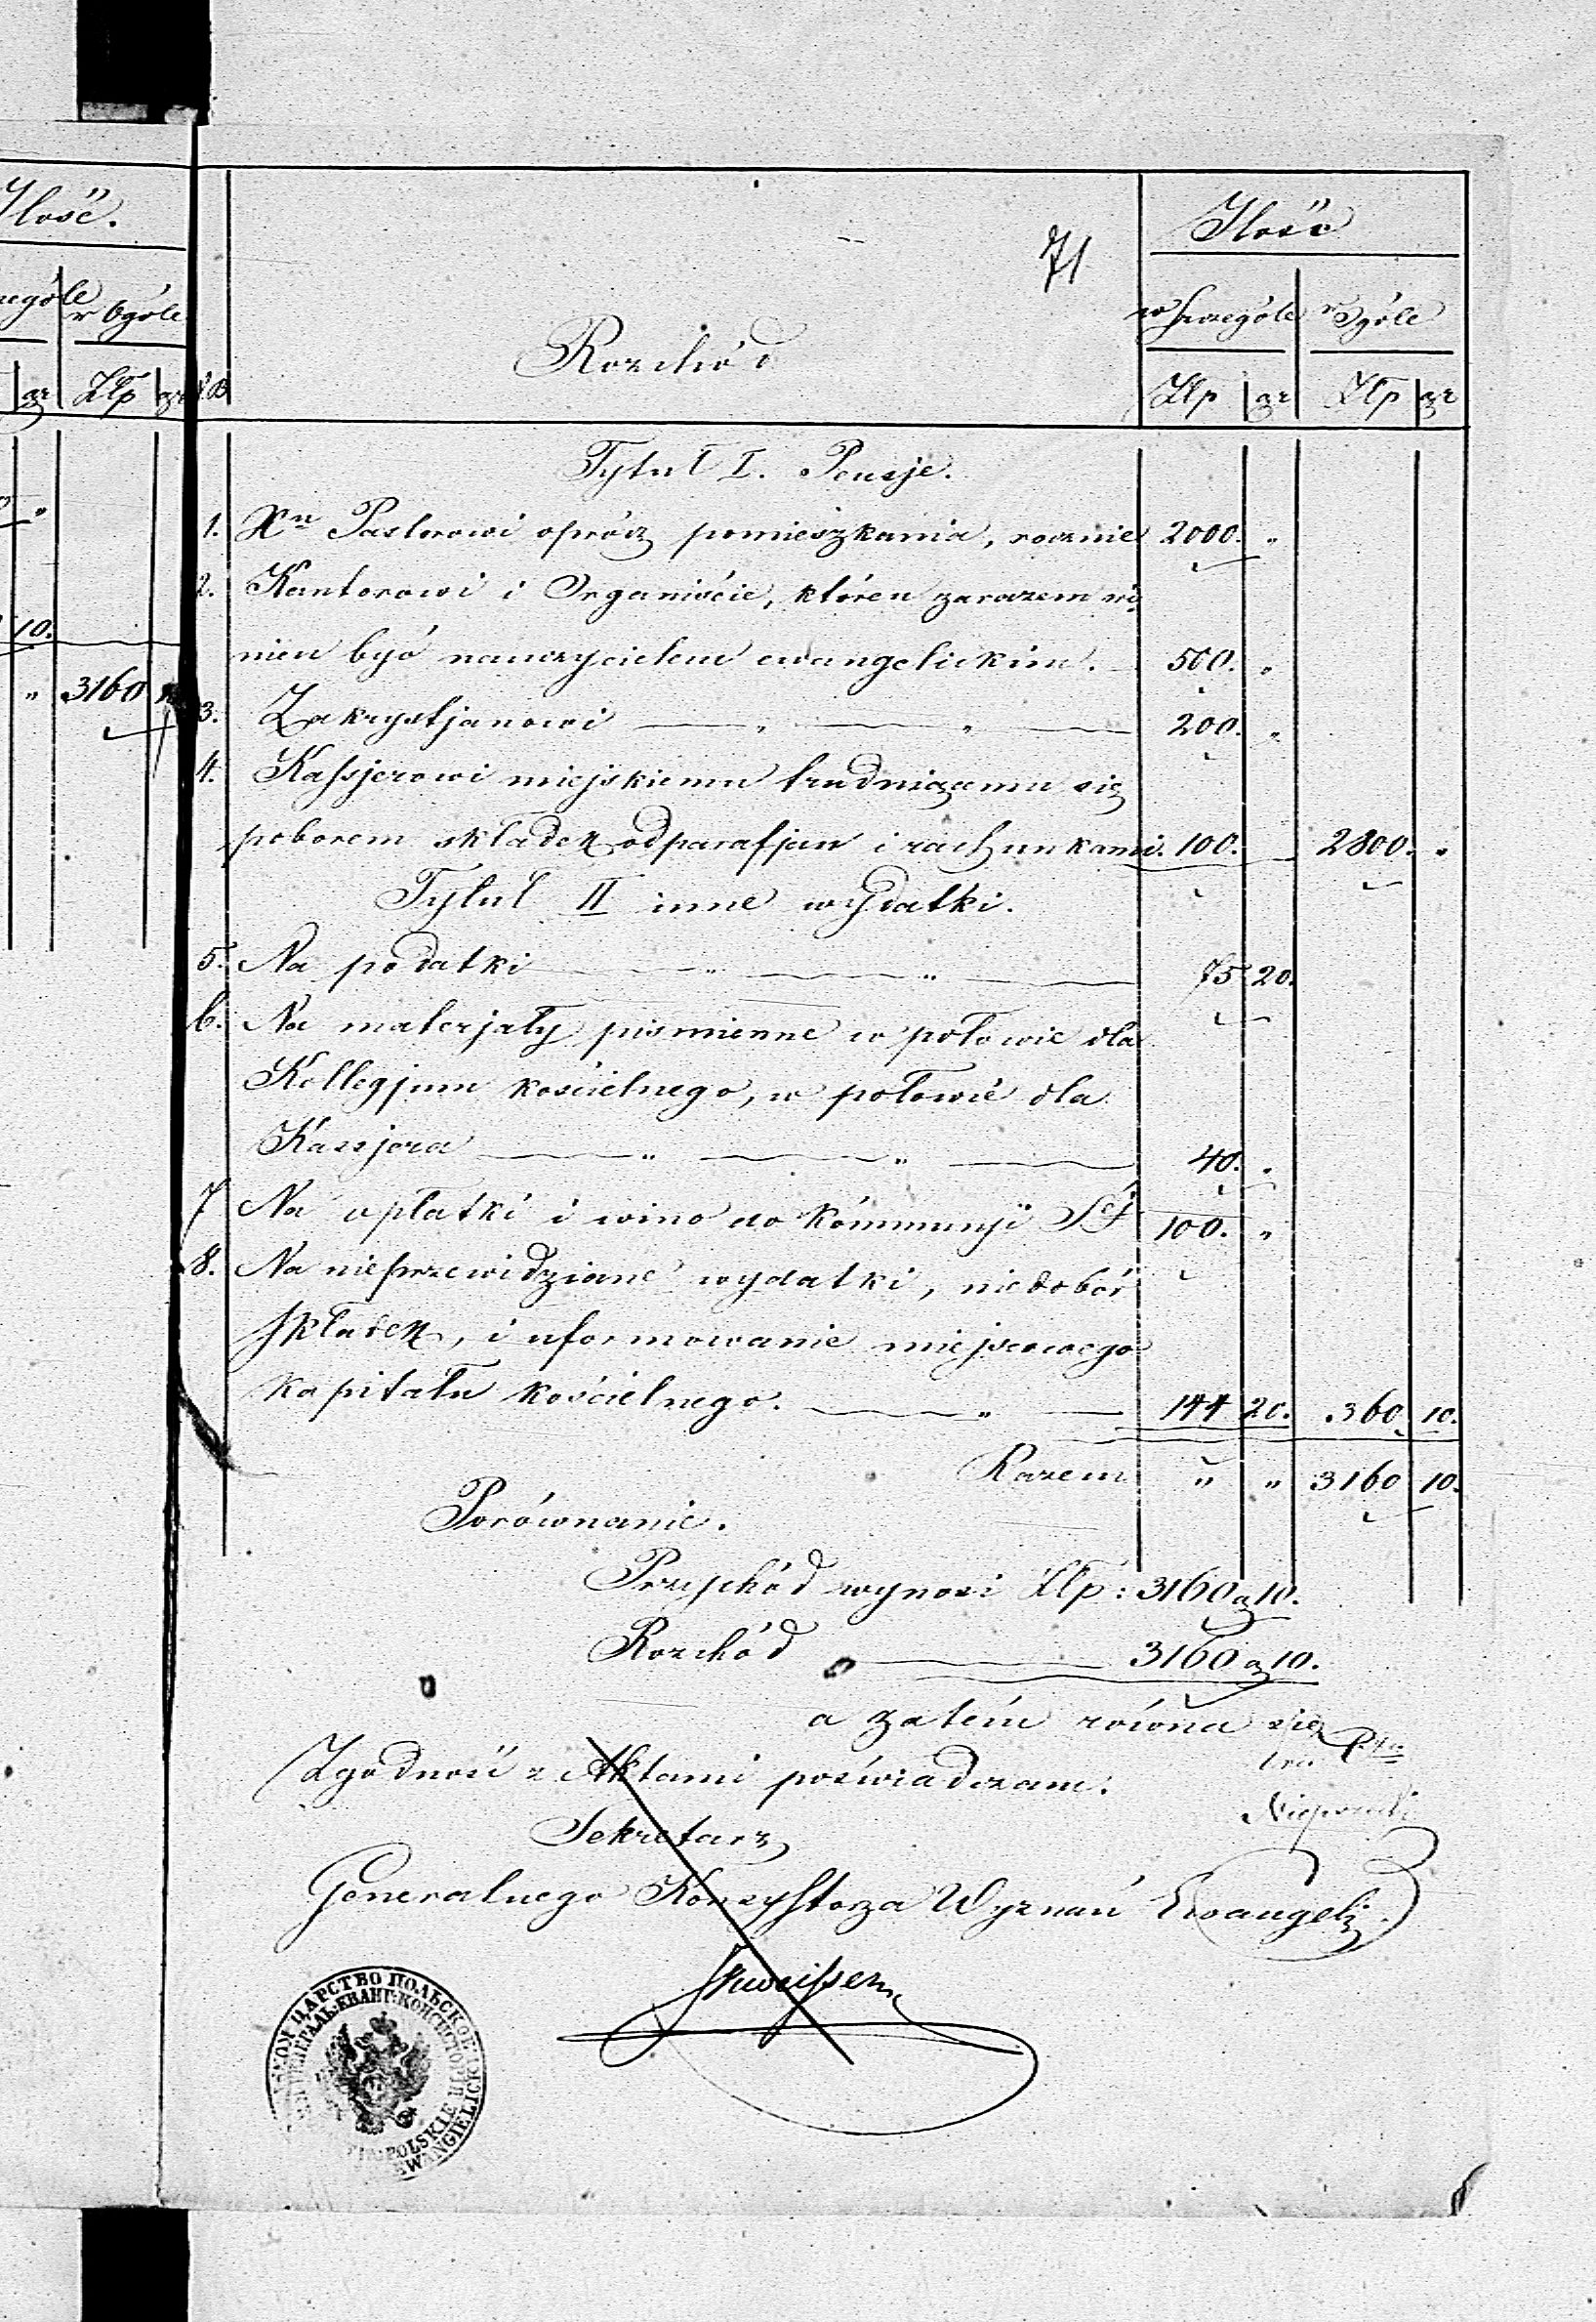 Ilość.
w Ogóle
gr Złp gr
10.
" 3160
71
Ilość
w Szczególe w Ogóle
Rozchód
Złp gr Złp gr
Tytuł I. Pensje.
1. Xu Pastorowi oprócz pomieszkania, rocznie 2000. "
2. Kantorowi i Organiście, któren zarazem wi-
nien być nauczycielem ewangelickim. 500. "
3. Zakrystjanowi — " — " — 200. "
4. Kassjerowi miejskiemu trudniącemu się
poborem składek od parafjan i rachunkami. 100. 2800. "
Tytuł II inne wydatki.
5. Na podatki — " — " — 75 20.
6. Na materjały pismienne w połowie dla
Kollegjum kościelnego, w połowie dla
Kassjera — " — " — 40. "
7 Na opłatki i wino do kommunji Sej 100. "
8. Na nieprzewidziane wydatki, niedobór
składek, i uformowanie miejscowego
kapitału kościelnego. — " — 144 20. 360 10.
Razem " " 3160 10.
Porównanie.
Przychód wynosi Złp: 3160 g 10.
Rozchód " — 3160 g 10.
a zatém równa się
Zgodność z Aktami poświadczam.
Sekretarz
Generalnego Konzystorza Wyznań Ewangeli.
ЦАРСТВО ПОЛЬСКОЕ
ГЕНЕРАЛЬ. ЕВАНГ. КОНСИСТОРІЯ
POLSKIE
EWANGIELICKI